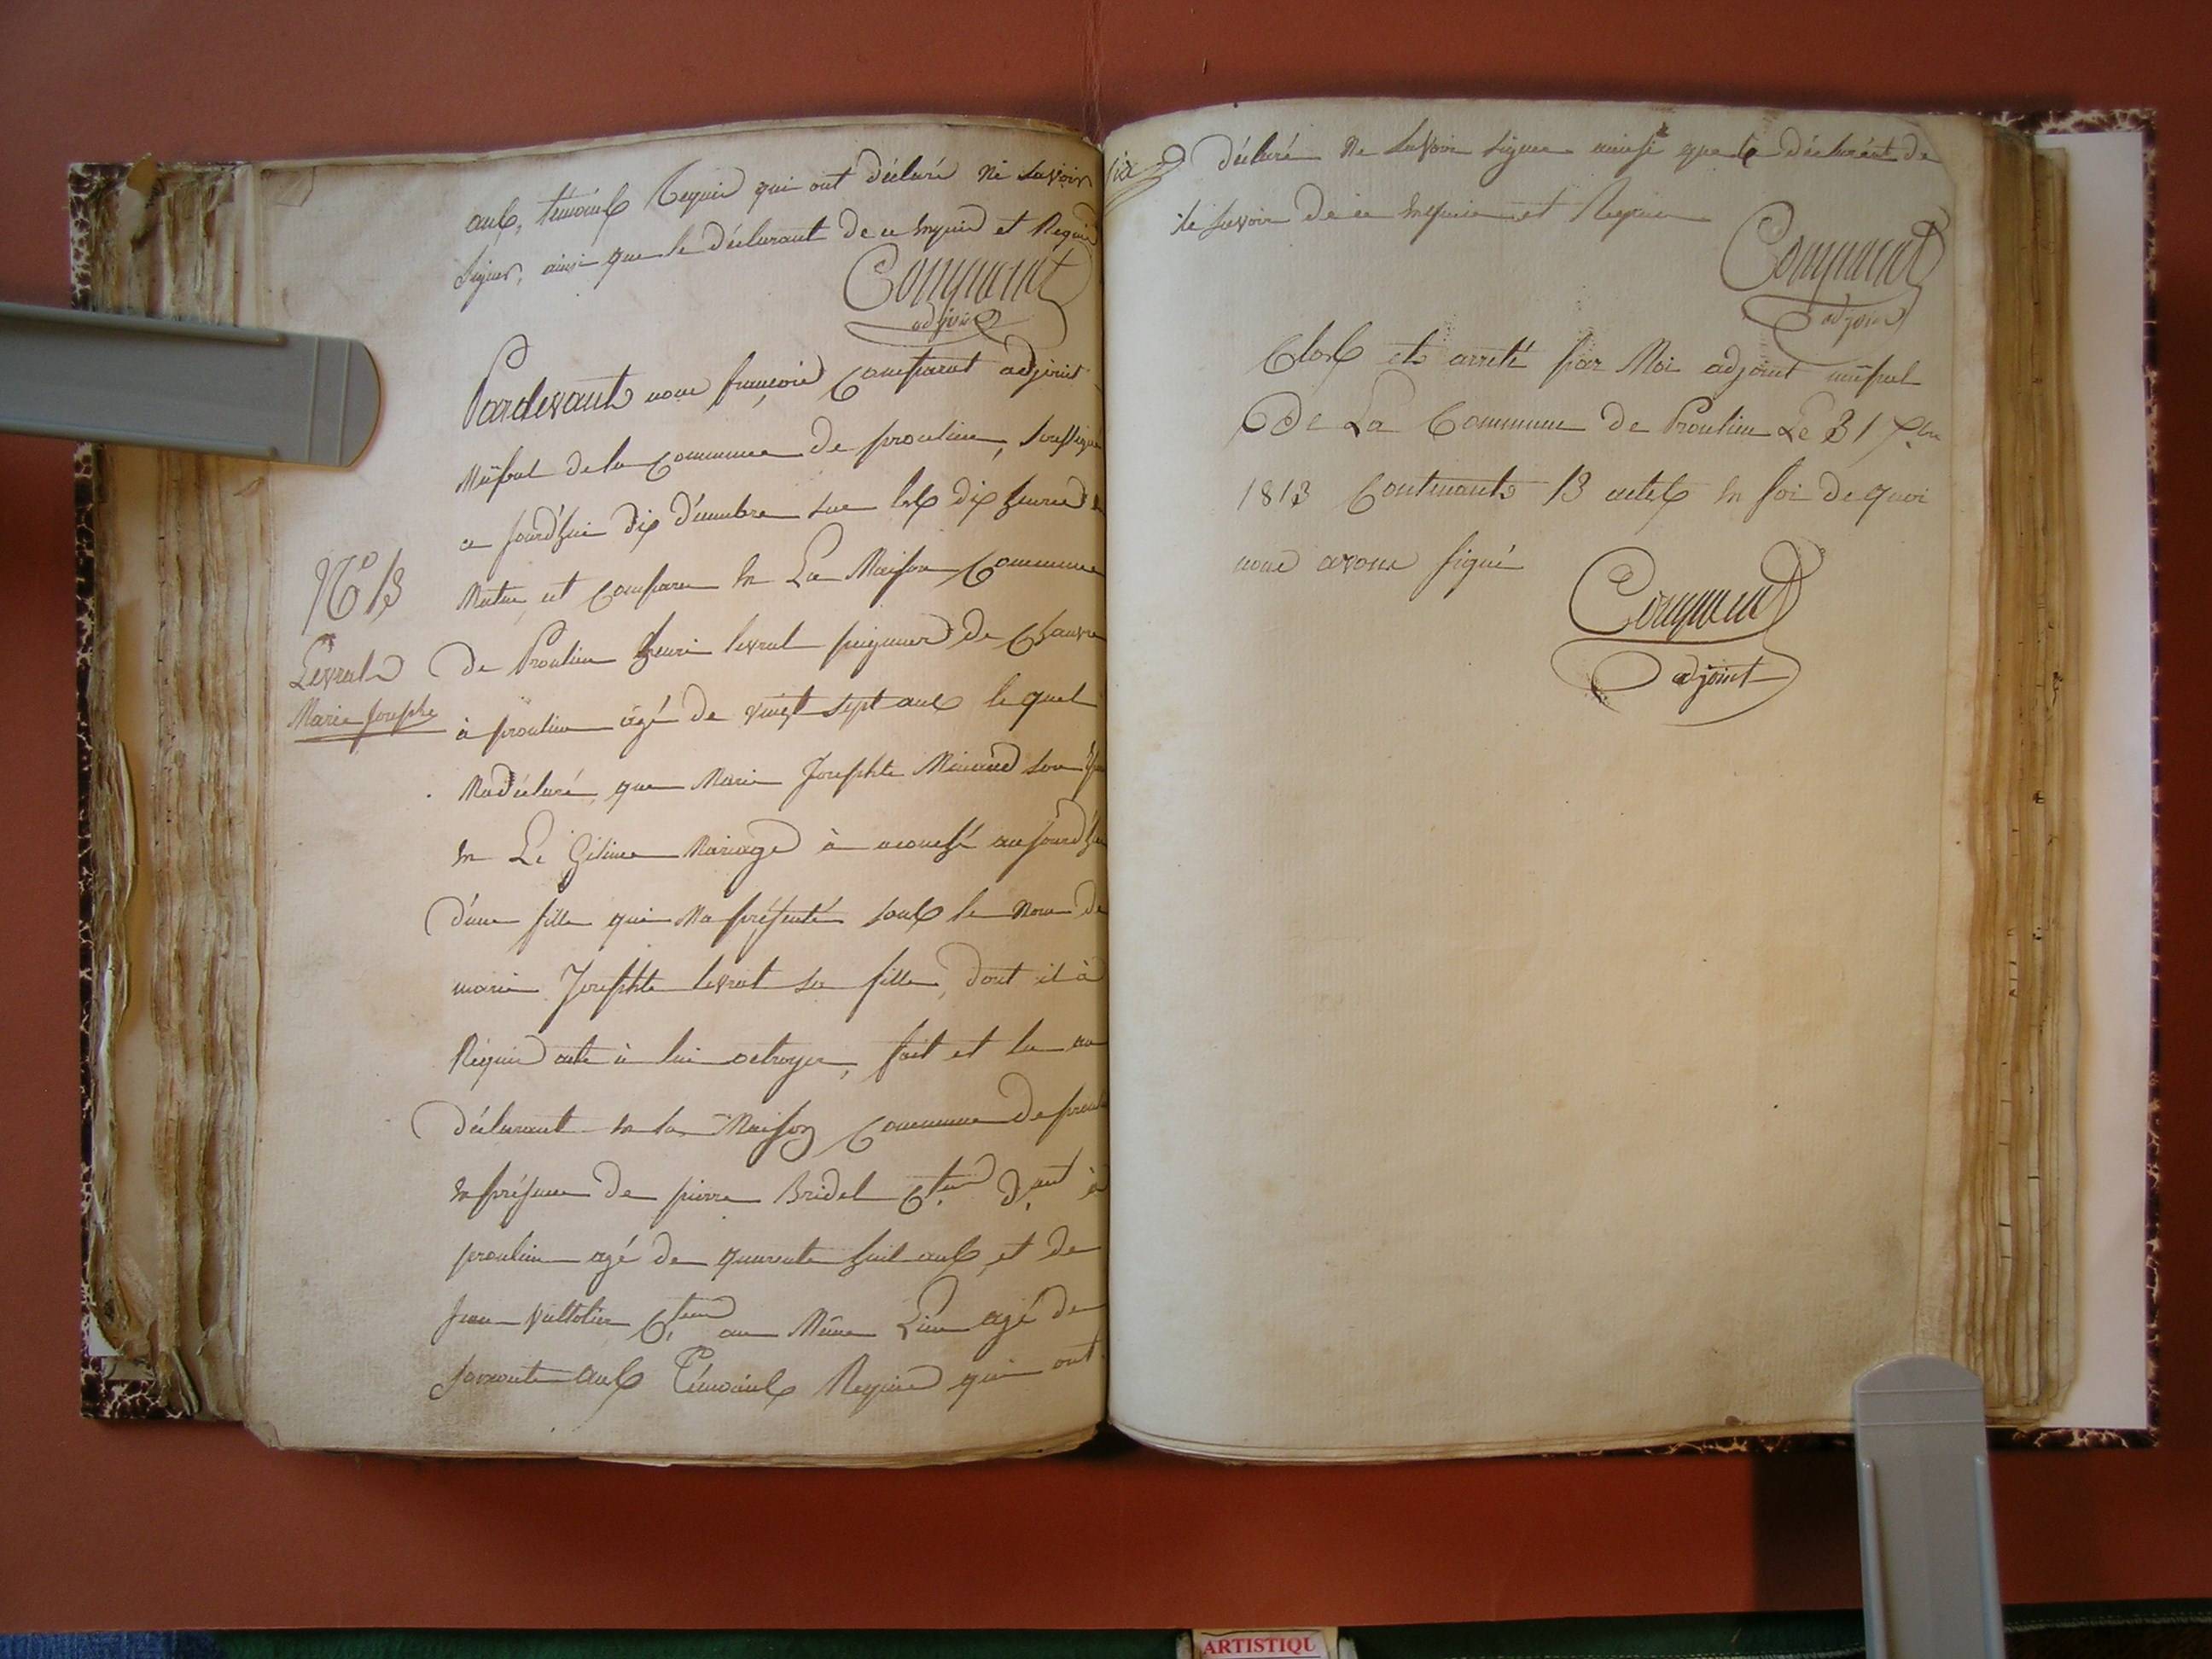 ans, témoins Requis qui ont déclaré ne savoir
signer, ainsi que le déclarant de ce enquis et Requis
Comparat
adjoint
Pardevant nous françois Comparat adjoint
Mūpal de la Commune de proulieu, soussigné
aujourd'hui dix décembre sur les dix heures du
Matin, est Comparu en La Maison Commune
N° 13
Levrat
Marie Josephe
de Proulieu henri levrat peigneur de Chanvre
à proulieu âgé de vingt sept ans lequel
Ma déclaré, que Marie Josephte son
en Légitime Mariage à acouché aujourd'hui
d'une fille qui Ma présenté sous le Nom de
marie Josephte levrat sa fille, dont il à
Requis acte à lui octroyer, fait et lu au
déclarant en la Maison Commune de
en présence de pierre Bridel C.teur d.ant à
proulieu agé de quarante huit ans, et de
Jean C.teur au Même Lieu agé de
ans Témoins Requis qui ont
déclaré Ne savoir signer ainsi que le déclarant de
le savoir de ce enquis et Requis
Comparat
adjoint
Clos et arrêté par Moi adjoint mūpal
De La Commune de Proulieu Le 31 Xbre
1813 Contenant 13 actes en foi de quoi
nous avons signé
Comparat
adjoint
ARTISTIQU